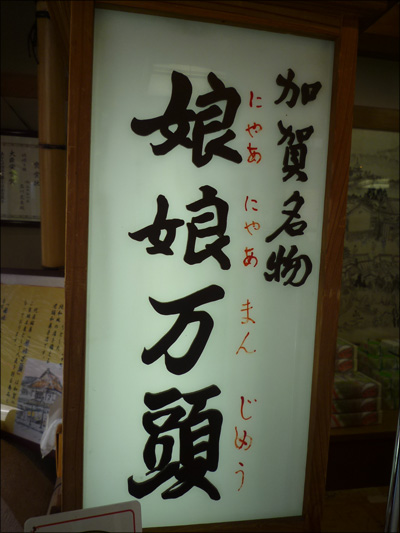 加賀名物
にゃあ にゃあ まん じゅう
娘娘万頭